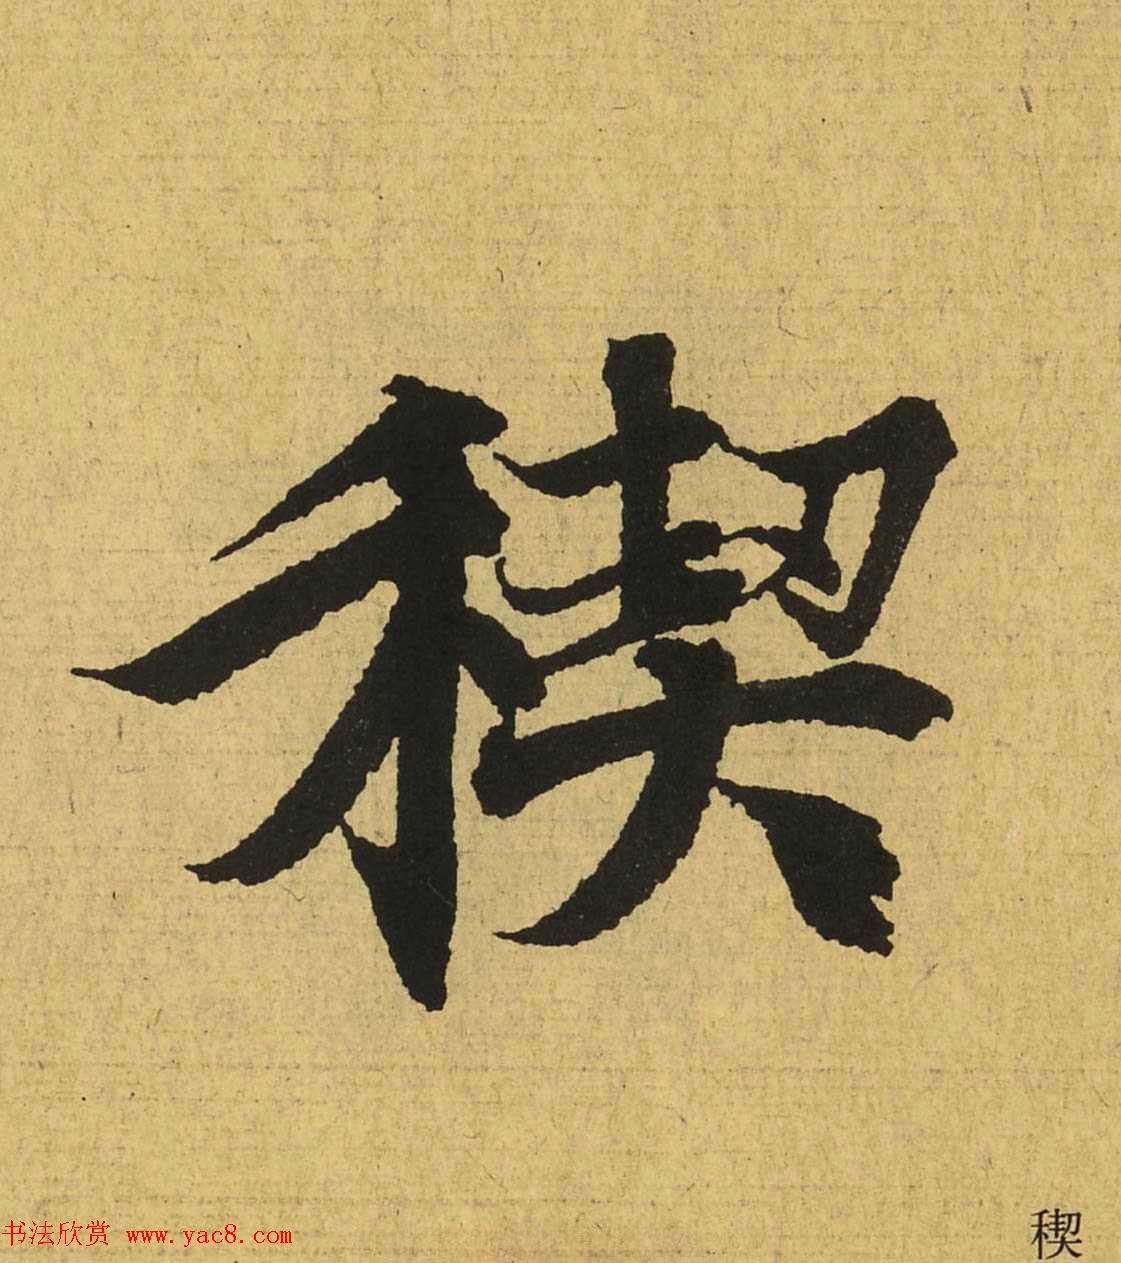 稧
书法欣赏 www.yac8.com
稧